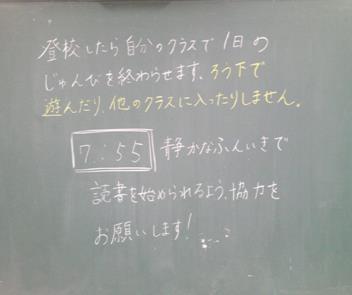 登校したら自分のクラスで1日の
じゅんびを終わらせます。ろう下で
遊んだり、他のクラスに入ったりしません。
7:55 静かなふんいきで
読書を始められるよう、協力を
お願いします!